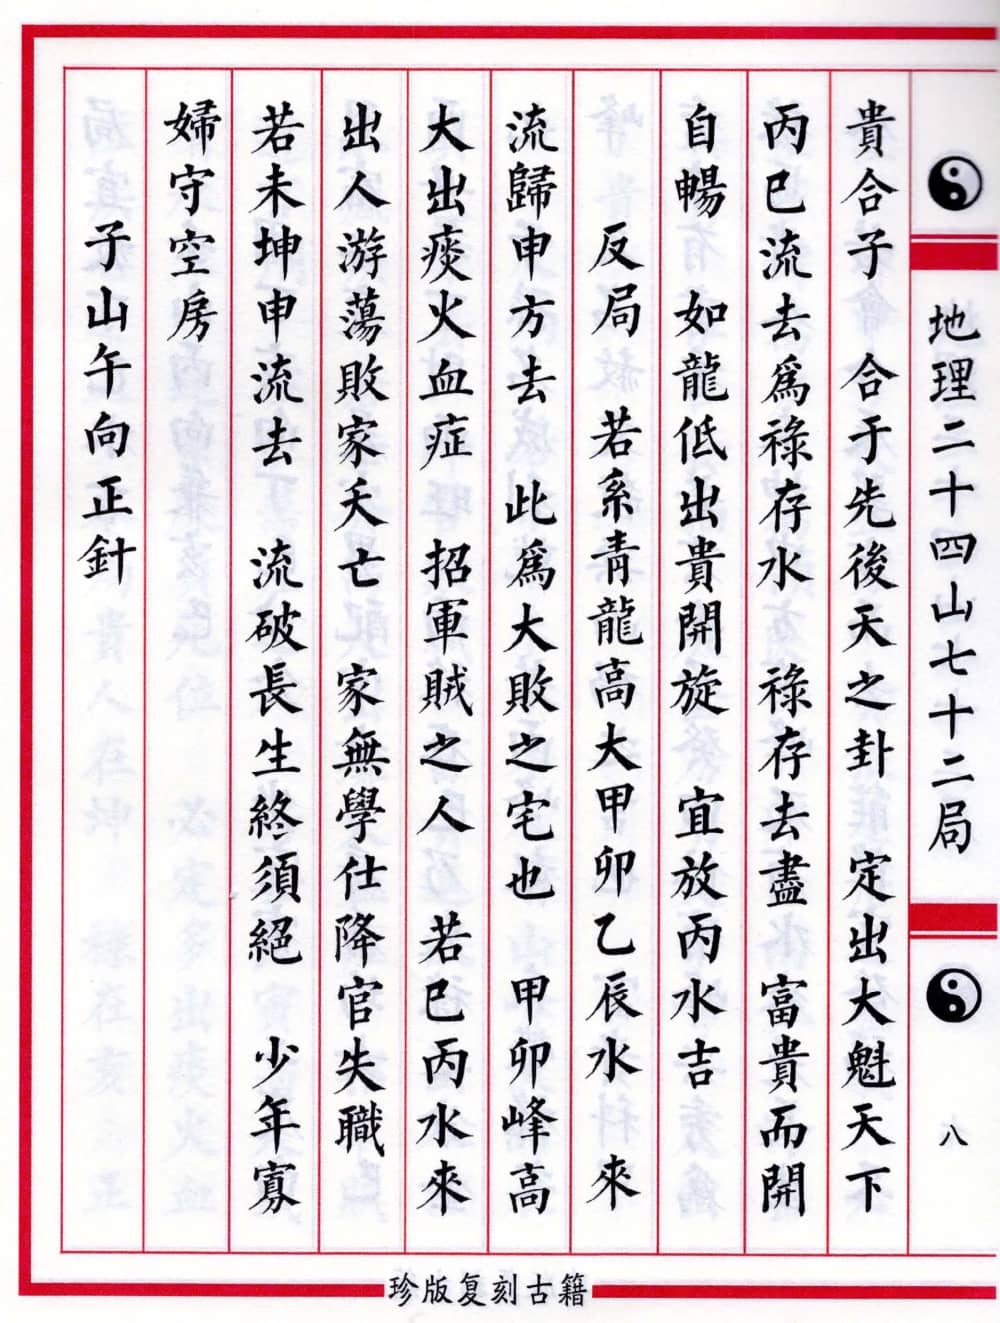 地理二十四山七十二局
八
貴合子　合于先後天之卦　定出大魁天下
丙巳流去爲祿存水　祿存去盡　富貴而開
自暢　如龍低出貴開旋　宜放丙水吉
反局　若系青龍高大甲卯乙辰水來
流歸申方去　此爲大敗之宅也　甲卯峰高
大出痰火血症　招軍賊之人　若巳丙水來
出人游蕩敗家夭亡　家無學仕降官失職
若未坤申流去　流破長生終須絕　少年寡
婦守空房
子山午向正針
珍版复刻古籍